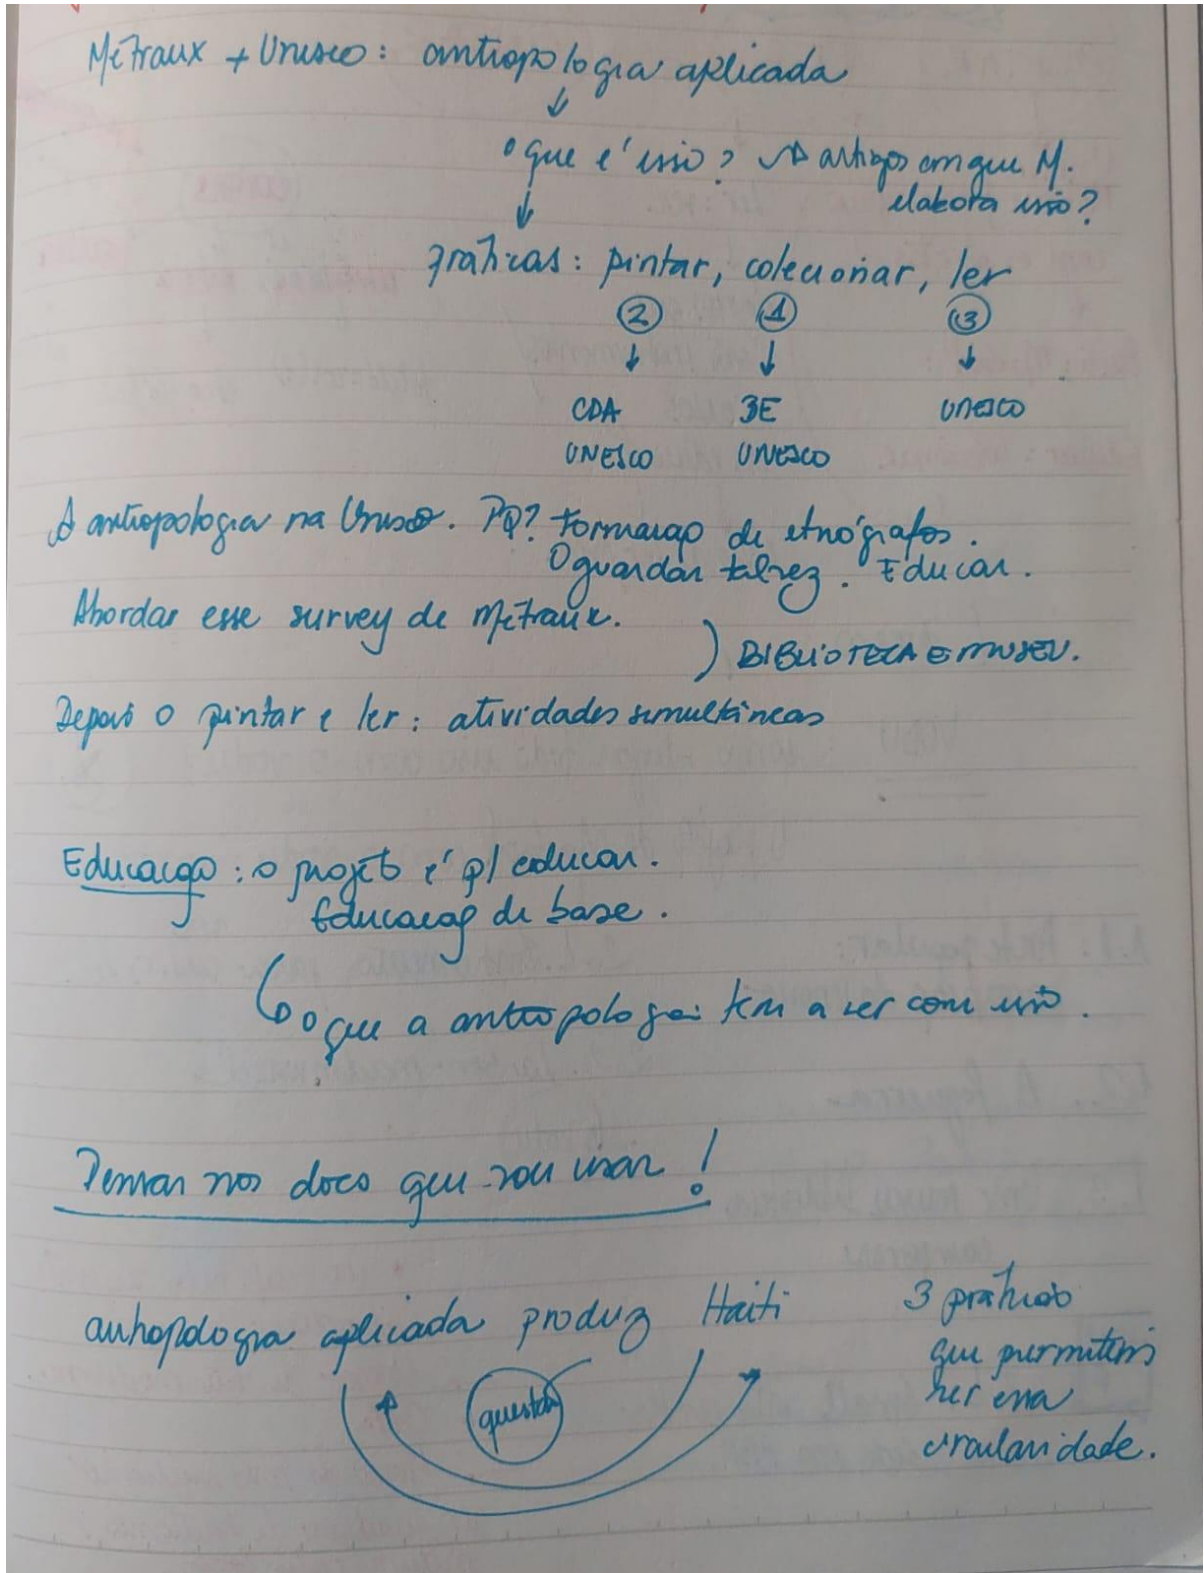 Métraux + Unesco: antropologia aplicada
↓
o que é isso? → artigos em que M.
elabora isso?
↓
práticas: pintar, colecionar, ler
② ① ③
↓ ↓ ↓
CDA BE UNESCO
UNESCO UNESCO
A antropologia na Unesco. PQ? Formação de etnógrafos.
O guardar talvez. Educar.
Abordar esse survey de Métraux.
) BIBLIOTECA E MUSEU.
Depois o pintar e ler: atividades simultâneas
Educação: o projeto é p/ educar.
Educação de base.
↳ o que a antropologia tem a ver com isso.
Pensar nos docs que vou usar!
antropologia aplicada produz Haiti
questão
3 práticas
que permitem
ver essa
circularidade.